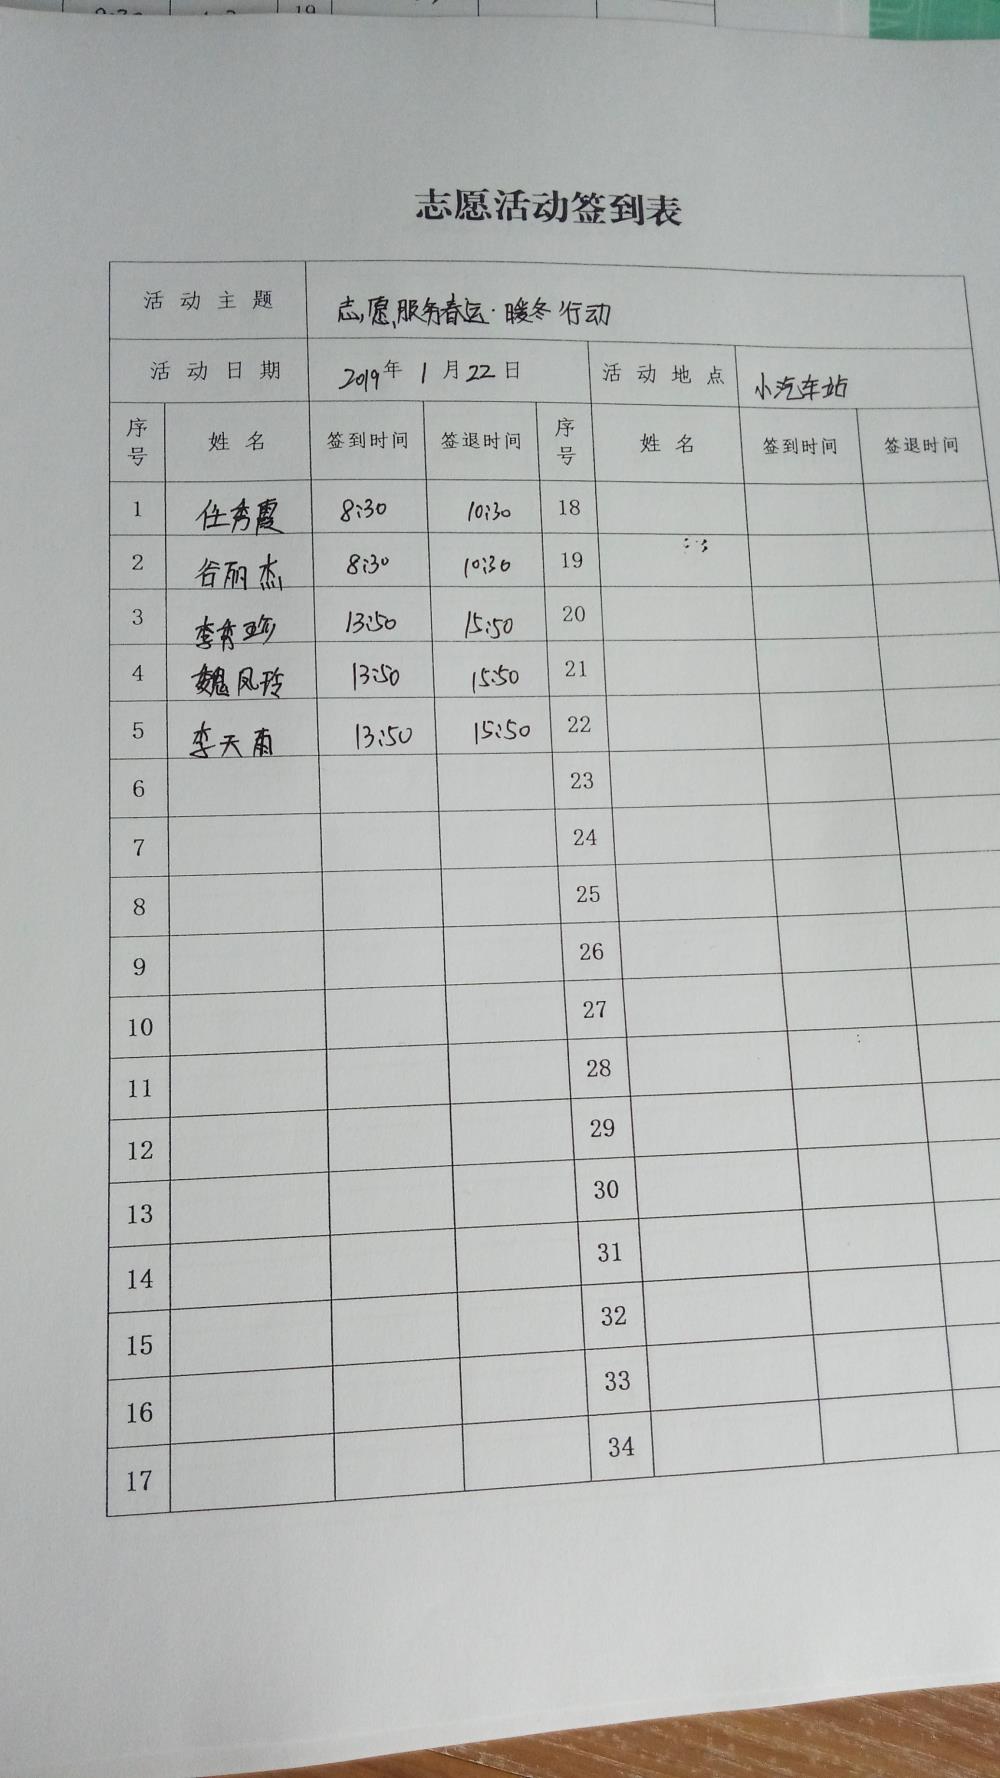 志愿活动签到表
活动主题 志愿服务春运·暖冬行动
活动日期 2019年1月22日 活动地点 小汽车站
序号 姓名 签到时间 签退时间 序号 姓名 签到时间 签退时间
1 任秀霞 8:30 10:30 18
2 谷丽杰 8:30 10:30 19
3 李秀珍 13:50 15:50 20
4 魏凤玲 13:50 15:50 21
5 李天雨 13:50 15:50 22
6 23
7 24
8 25
9 26
10 27
11 28
12 29
13 30
14 31
15 32
16 33
17 34